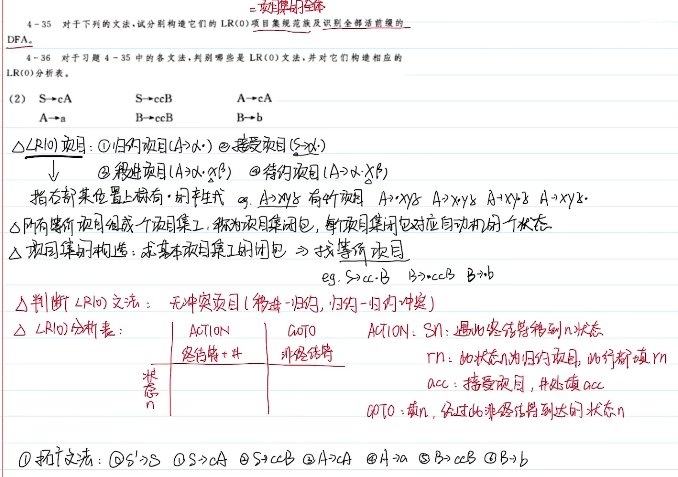 =项目集的全体
4-35 对于下列的文法,试分别构造它们的 LR(0)项目集规范族及识别全部活前缀的
DFA。
4-36 对于习题 4-35 中的各文法,判别哪些是 LR(0)文法,并对它们构造相应的
LR(0)分析表。
(2) S→cA S→ccB A→cA
A→a B→ccB B→b
△LR(0)项目:①归约项目(A→α·) ②接受项目(S→α·)
③移进项目(A→α·xβ) ④待约项目(A→α·Xβ)
指右部某位置上标有·的产生式 eg. A→xyz 有4个项目 A→·xyz A→x·yz A→xy·z A→xyz·
△所有等价项目组成一个项目集I,称为项目集闭包,每个项目集闭包对应自动机的一个状态
△项目集的构造:求基本项目集I的闭包 ⇒ 找等价项目
eg. S→cc·B B→·ccB B→·b
△判断 LR(0)文法: 无冲突项目(移进-归约,归约-归约冲突)
△ LR(0)分析表: ACTION GOTO ACTION: Sn:遇此终结符移到n状态
终结符+# 非终结符 rn:此状态n为归约项目,此行都填rn
状态n acc:接受项目,#处填acc
GOTO:填n,经过此非终结符到达的状态n
①拓广文法:⓪S'→S ①S→cA ②S→ccB ③A→cA ④A→a ⑤B→ccB ⑥B→b